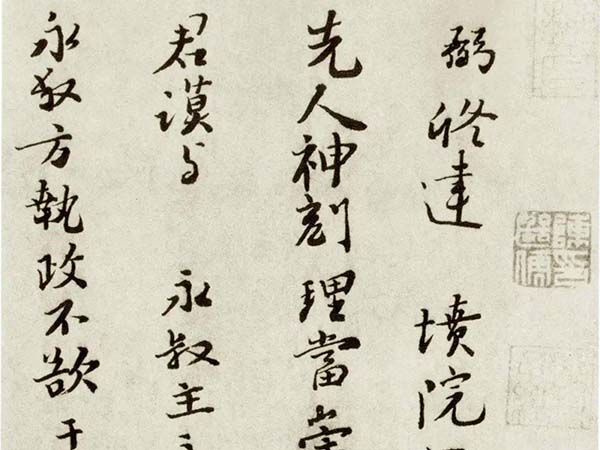 弼修建 墳院
先人神刻理當崇
君謨与 永叔主
永叔方執政不欲干